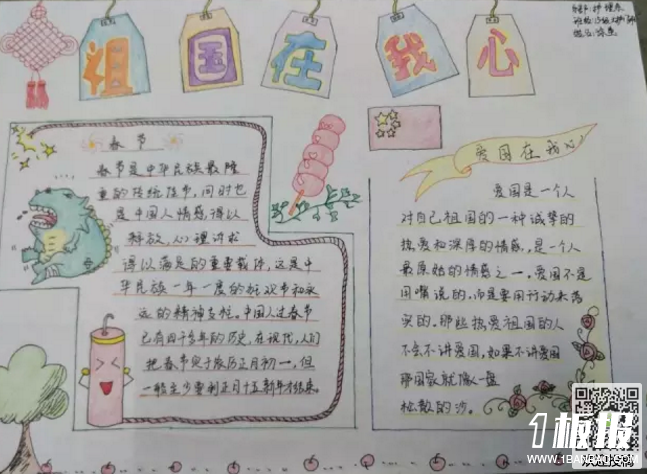 祖国在我心
春节
春节是中华民族最隆
重的传统佳节，同时也
是中国人情感得以
释放，心理诉求
得以满足的重要载体，这是中
华民族一年一度的狂欢节和永
远的精神支柱。中国人过春节
已有四千多年的历史，在现代，人们
把春节定于农历正月初一，但
一般至少要到正月十五新年才结束。
爱国在我心
爱国是一个人
对自己祖国的一种诚挚的
热爱和深厚的情感，是一个人
最原始的情感之一，爱国不是
用嘴说的，而是要用行动来落
实的，那些热爱祖国的人
不会不讲爱国，如果不讲爱国
那国家就像一盘
松散的沙。
1板报
WWW.1BANBAO.COM